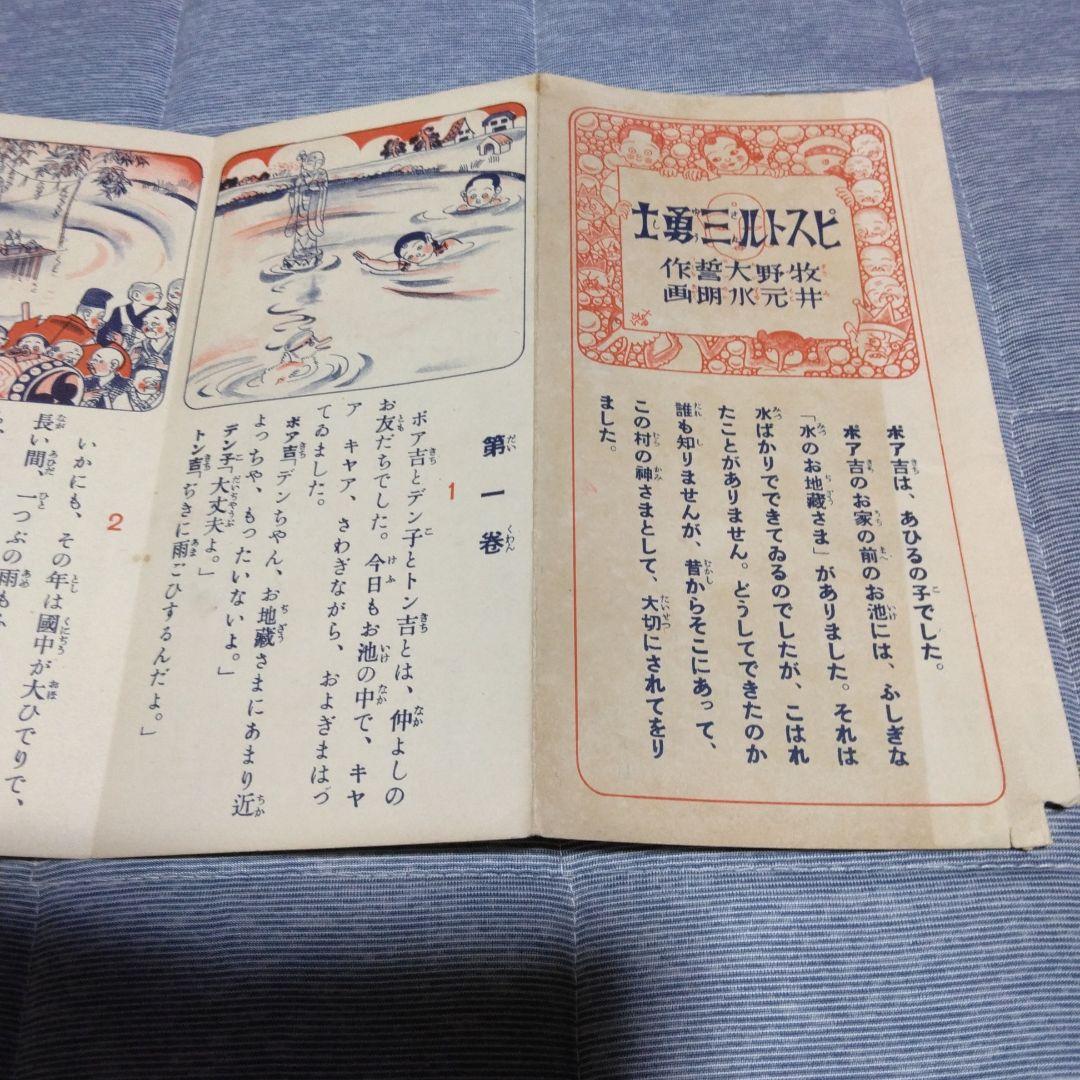 ピストル三勇士
牧野大誓作
井元水明画
ポア吉は、あひるの子でした。
ポア吉のお家の前のお池には、ふしぎな
「水のお地藏さま」がありました。それは
水ばかりでできてゐるのでしたが、こはれ
たことがありません。どうしてできたのか
誰も知りませんが、昔からそこにあつて、
この村の神さまとして、大切にされてをり
ました。
第一巻
1
ポア吉とデン子とトン吉とは、仲よしの
お友だちでした。今日もお池の中で、キヤ
ア キヤア、さわぎながら、およぎまはつ
てゐました。
ポア吉「デンちやん、お地藏さまにあまり近
よつちや、もつたいないよ。」
デン子「大丈夫よ。」
トン吉「ぢきに雨ごひするんだよ。」
2
いかにも、その年は國中が大ひでりで、
長い間、一つぶの雨もふ